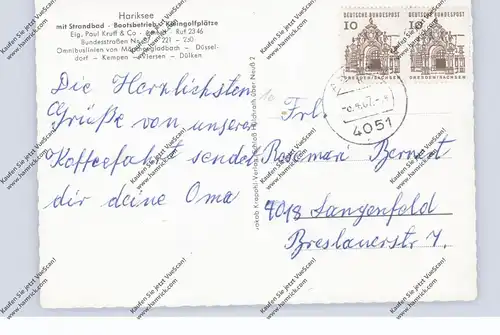 Hariksee
mit Strandbad - Bootsbetrieb - Kleingolfplätze
Eig. Paul Kruff & Co - Ruf 2346
Bundesstraßen Nr. 221 - 230
Omnibuslinien von Mönchengladbach - Düssel-
dorf - Kempen - Viersen - Dülken
Die Herzlichsten
Grüße von unserer
Kaffeefahrt sendet
dir deine Oma
Jakob Krapohl-Verlag, Schloß Hülchrath über Neuß 2
DEUTSCHE BUNDESPOST
10
DRESDEN/SACHSEN
DEUTSCHE BUNDESPOST
10
DRESDEN/SACHSEN
4051
Frl.
Rosemari Bernert
4018 Langenfeld
Breslauerstr 7.
Kaufen Sie jetzt VueScan!
www.hamrick.com